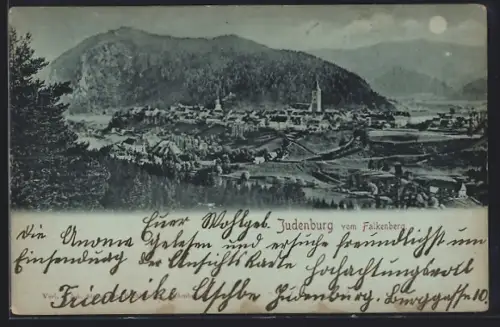 Judenburg vom Falkenberg.
Euer Wohlgeb.
Die Anonce gelesen und ersuche freundlichst um
Einsendung der Ansichtskarte Hochachtungsvoll
Friederike Judenburg. Burggasse 10.